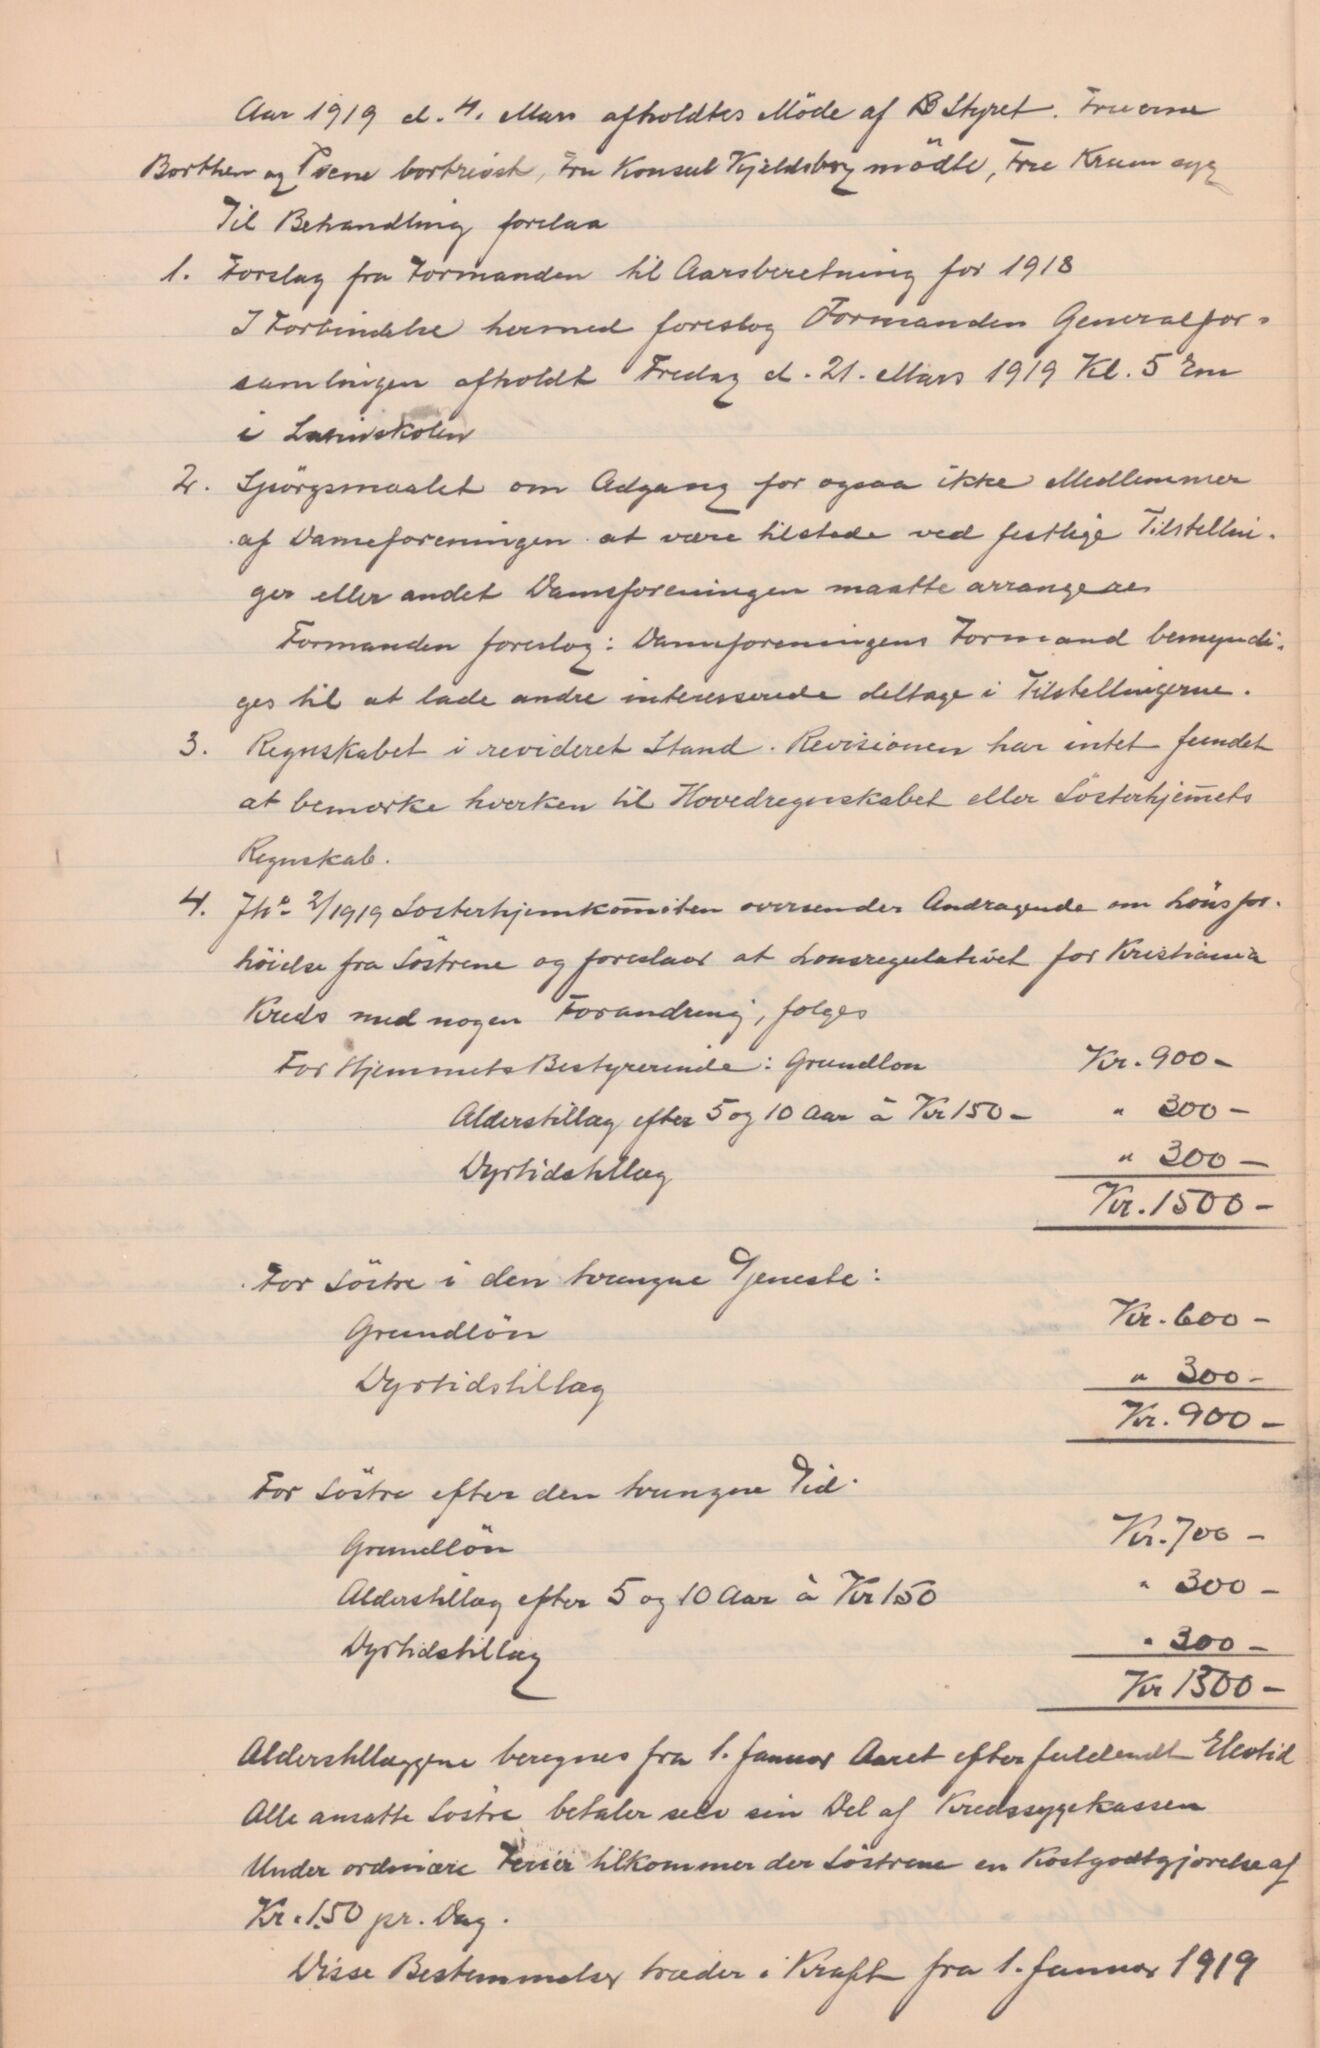 Aar 1919 d. 4. Mars afholdtes Møde af Styret. Fruerne
Borthen og Tvene bortreist, Fru Konsul Kjeldsberg mødte, Frue Kram syg
Til Behandling forelaa
1. Forslag fra Formanden til Aarsberetning for 1918
I Forbindelse hermed foreslog Formanden Generalfor-
samlingen afholdt Fredag d. 21. Mars 1919 Kl. 5 Em
i Latinskolen
2. Spörgsmaalet om Adgang for ogsaa ikke Medlemmer
af Dameforeningen at være tilstede ved festlige Tilstellin-
ger eller andet Dameforeningen maatte arrangere
Formanden foreslog: Dameforeningens Formand bemyndi-
ges til at lade andre interesserede deltage i Tilstellingerne.
3. Regnskabet i revideret Stand. Revisionen har intet fundet
at bemærke hverken til Hovedregnskabet eller Søsterhjem̅ets
Regnskab.
4. 2/1919 Søsterhjemkom̅iteen oversender Andragende om Lönsfor-
höielse fra Söstrene og foreslaar at Lønsregulativet for Kristiania
Kreds med nogen Forandring, følges
For Hjemmets Bestyrerinde: Grundløn Kr. 900 –
Alderstillæg efter 5 og 10 Aar à Kr 150 – " 300 –
Dyrtidstillæg " 300 –
Kr. 1500 –
For Söstre i den tvungne Tjeneste:
Grundlön Kr. 600 –
Dyrtidstillæg " 300 –
Kr. 900 –
For Söstre efter den tvungne Tid.
Grundlön Kr. 700 –
Alderstillæg efter 5 og 10 Aar à Kr 150 " 300 –
Dyrtidstillæg " 300 –
Kr 1300 –
Alderstillæggene beregnes fra 1. Januar Aaret efter fuldendt Elevtid
Alle ansatte Søstre betaler selv sin Del af Kredssygekassen
Under ordinære Ferier tilkommer der Söstrene en Kostgodtgjørelse af
Kr. 1.50 pr. Dag.
Disse Bestemmelser træder i Kraft fra 1. Januar 1919